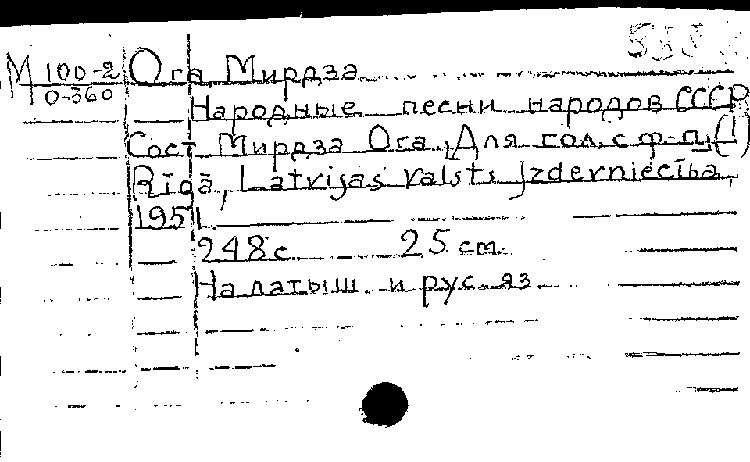 М 100-2 Ога Мирдза
0-360
Народные песни народов СССР
Сост Мирдза Ога. Для гол. с ф-п. (1)
Rīgā, Latvijas Valsts Izdevniecība,
1951.
248 с. 25 см.
На латыш. и рус. яз.